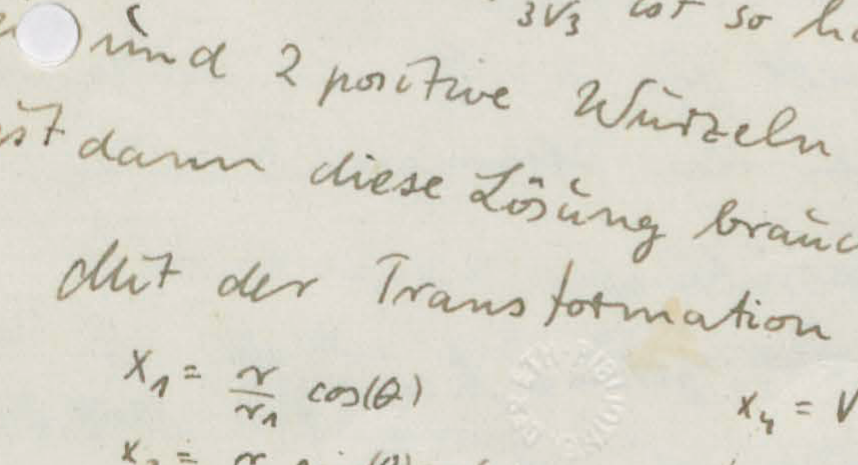 3√3 ist so
und 2 positive Wurzeln
ist dann diese Lösung
Mit der Transformation
x₁ = r/r₁ cos(θ) x₄ =